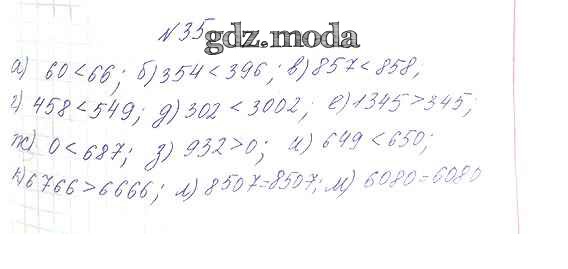 №35
gdz.moda
а) 60<66; б) 354<396; в) 857<858,
г) 458<549; д) 302<3002; е) 1345>345;
ж) 0<687; з) 932>0; и) 649<650;
к) 6766>6666; л) 8507=8507; м) 6080=6080